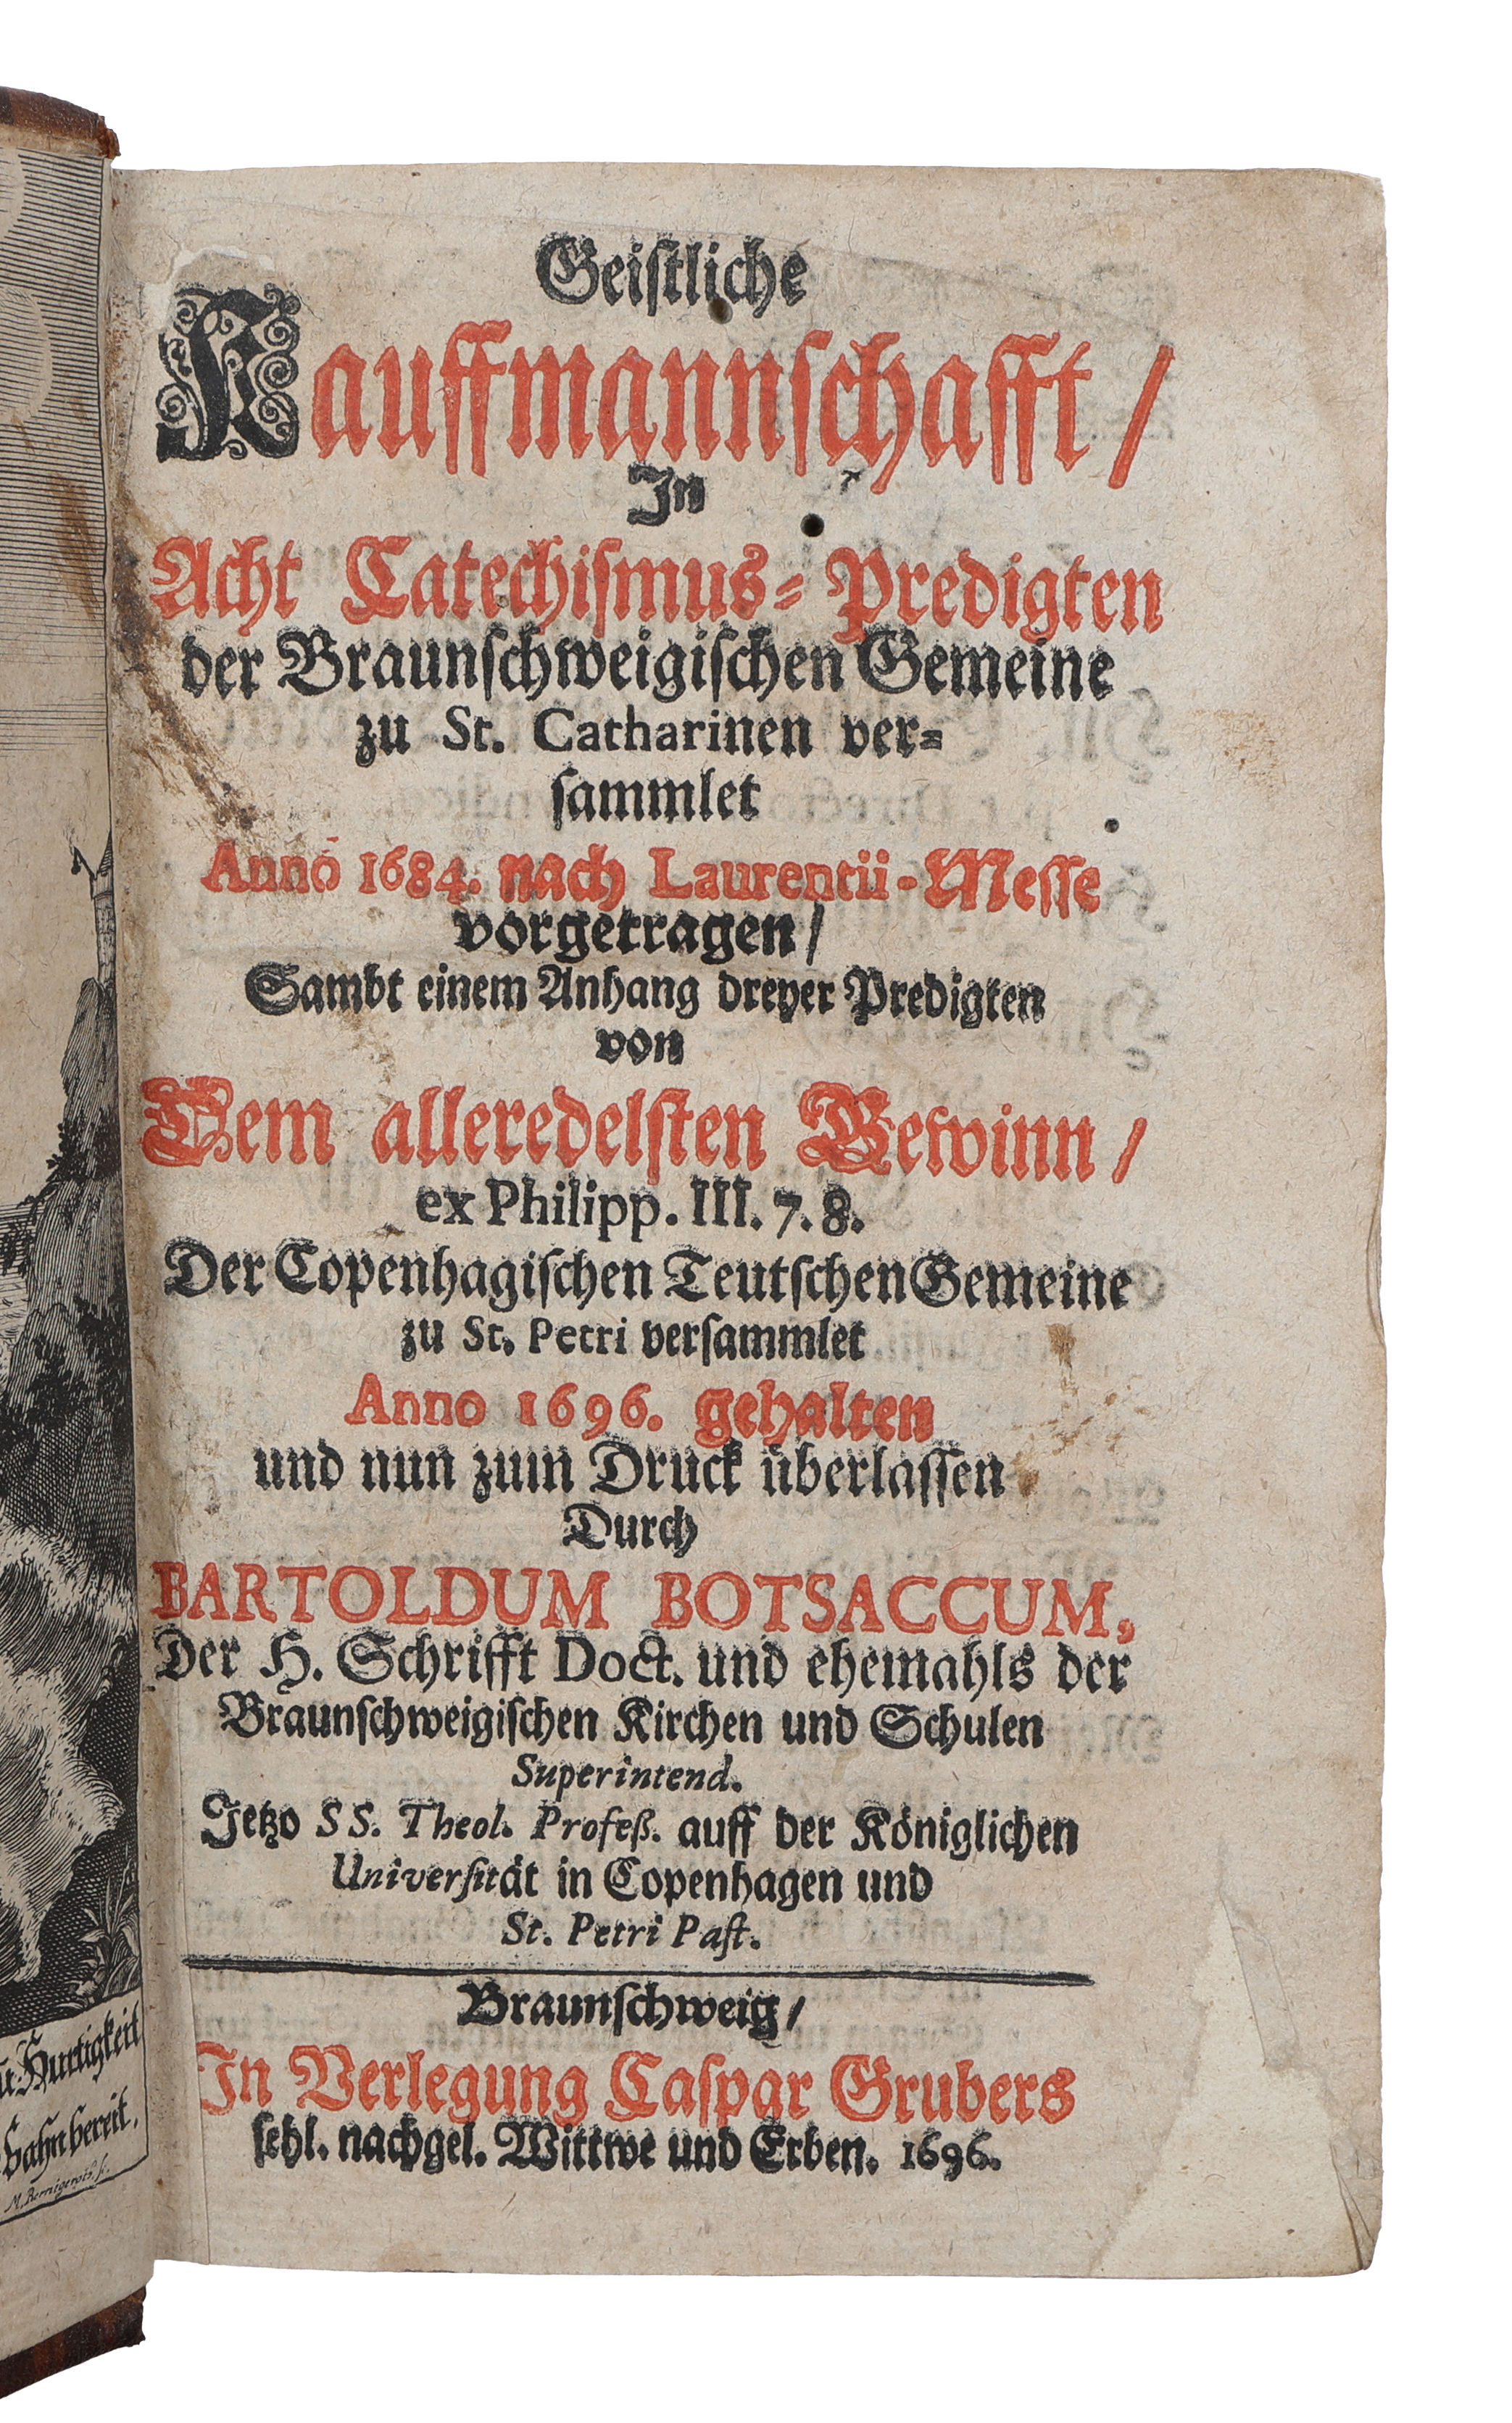 Geistliche
Kauffmannschafft/
In
Acht Catechismus-Predigten
der Braunschweigischen Gemeine
zu St. Catharinen ver-
sammlet
Anno 1684. nach Laurentii-Messe
vorgetragen/
Sambt einem Anhang dreyer Predigten
von
Dem alleredelsten Gewinn/
ex Philipp. III. 7. 8.
Der Copenhagischen Teutschen Gemeine
zu St. Petri versammlet
Anno 1696. gehalten
und nun zum Druck überlassen
Durch
BARTOLDUM BOTSACCUM,
Der H. Schrifft Doct. und ehemahls der
Braunschweigischen Kirchen und Schulen
Superintend.
Jetzo SS. Theol. Profeß. auff der Königlichen
Universität in Copenhagen und
St. Petri Past.
Braunschweig/
In Verlegung Caspar Grubers
sehl. nachgel. Wittwe und Erben. 1696.
Hurtigkeit
bahn bereit.